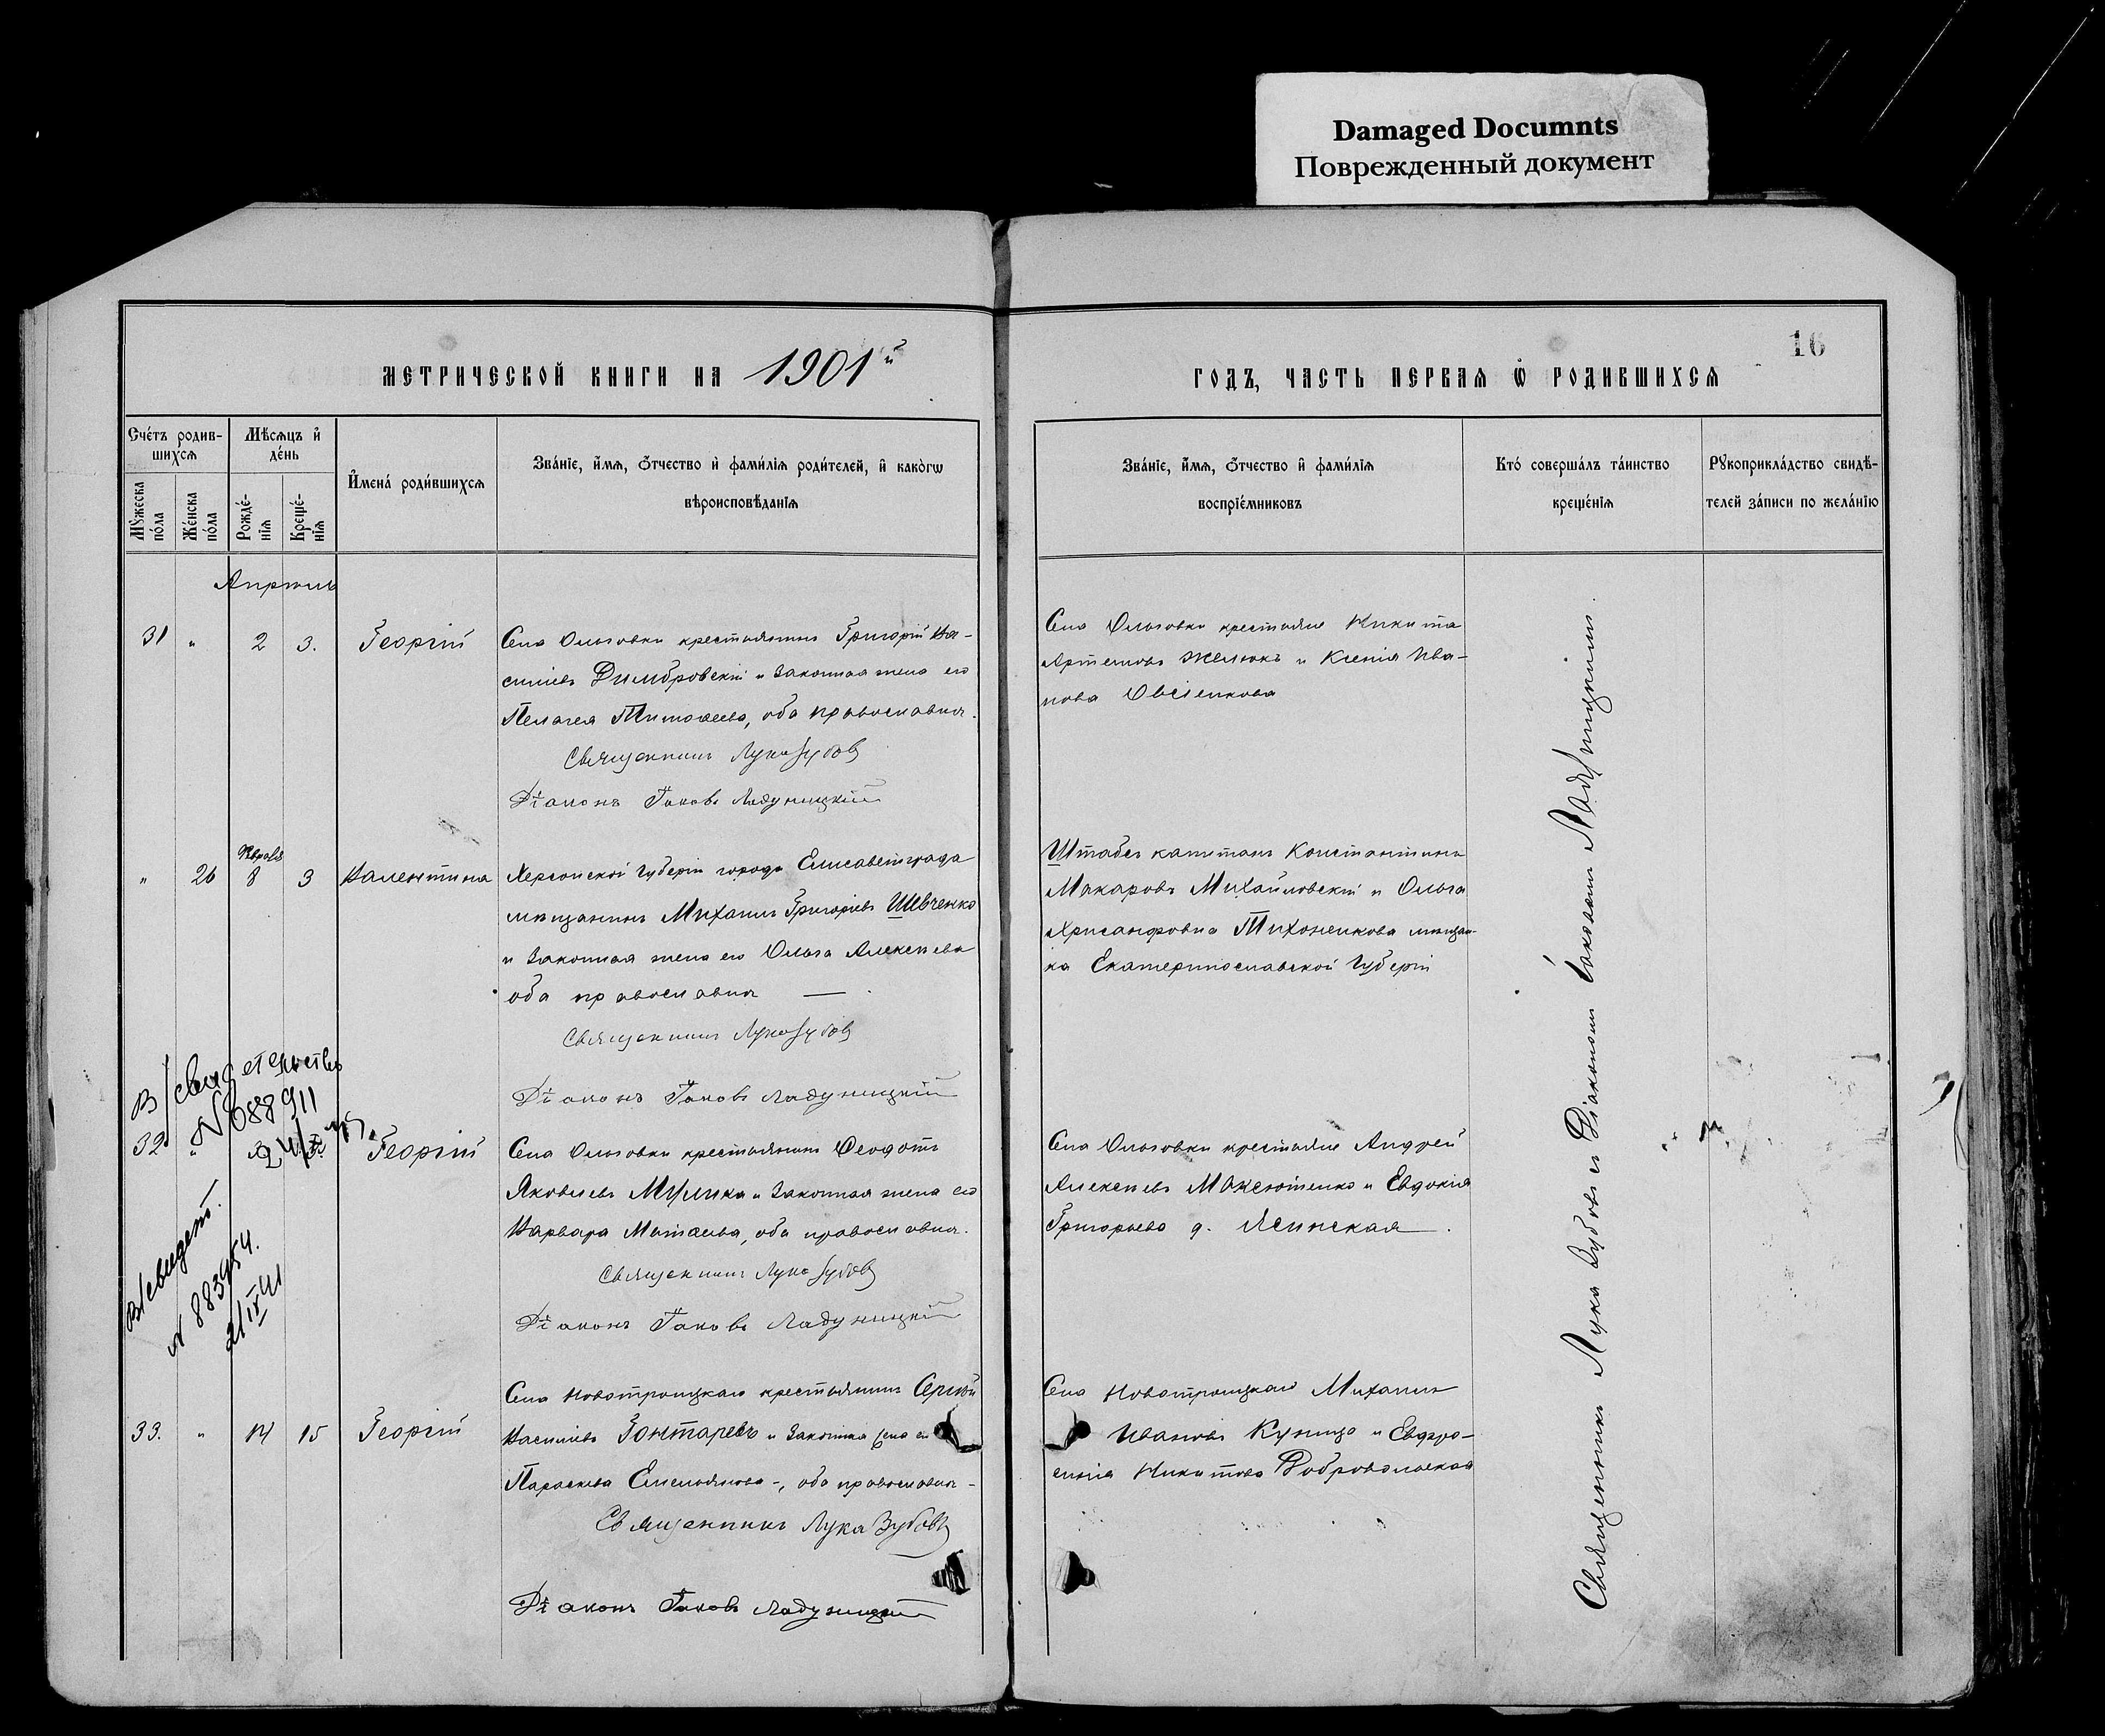 Damaged Documnts
Поврежденный документ
16
МЕТРИЧЕСКОЙ КНИГИ НА 1901й
ГОДЪ, ЧАСТЬ ПЕРВАЯ Ѡ РОДИВШИХСЯ
Счétъ родив-
шихся
Мѣсяцъ и
дéнь
Мýжеска
пóла
Жéнска
пóла
Рождé-
нія
Крещé-
нія
Именá роди́вшихся
Звáніе, и́мя, óтчество и фами́лія роди́телей, и какóгѡ
вѣроисповѣ́данія
Звáніе, и́мя, óтчество и фами́лія
воспріéмниковъ
Ктó совершáлъ тáинство
крещéнія
Рукоприклáдство свидѣ́-
телей зáписи по желáнію
Апрѣль
31 " 2 3. Георгій
Села Ольговки крестьянинъ Григорій Ва-
сильевъ Димбровскій и законная жена его
Пелагея Тимоѳеева, оба православны.
Священникъ Лука Зубовъ
Діаконъ Іаковъ Ладуницкій
Села Ольговки крестьяне Никита
Артемовъ Желюкъ и Ксенія Ива-
нова Овсіенкова
" 26 Февраля 8 3 Валентина
Херсонской губерніи города Елисаветграда
мѣщанинъ Михаилъ Григорьевъ Шевченко
и законная жена его Ольга Алексѣева
оба православны —
Священникъ Лука Зубовъ
Діаконъ Іаковъ Ладуницкій
Штабсъ капитанъ Константинъ
Макаровъ Михайловскій и Ольга
Хрисанфовна Тихоненкова мѣщан-
ка Екатеринославской губерніи
В/свидетельство
N 088911
32 " Георгій
Села Ольговки крестьянинъ Ѳеодотъ
Яковлевъ Мулика и законная жена его
Варвара Матѳеева, оба православны.
Священникъ Лука Зубовъ
Діаконъ Іаковъ Ладуницкій
Села Ольговки крестьяне Андрей
Алексѣевъ Максютенко и Евдокія
Григорьева д. Ясинская.
В/свидет.
N 883954.
21 IV 41
33. " 14 15 Георгій
Села Новотроицкаго крестьянинъ Сергѣй
Васильевъ Гонтаревъ и законная жена его
Параскева Емельянова -, оба православны -
Священникъ Лука Зубовъ
Діаконъ Іаковъ Ладуницкій
Села Новотроицкаго Михаилъ
Ивановъ Куница и Евфро-
синія Никитова Добровольская
Священникъ Лука Зубовъ съ Діакономъ Іаковомъ Ладуницкимъ.